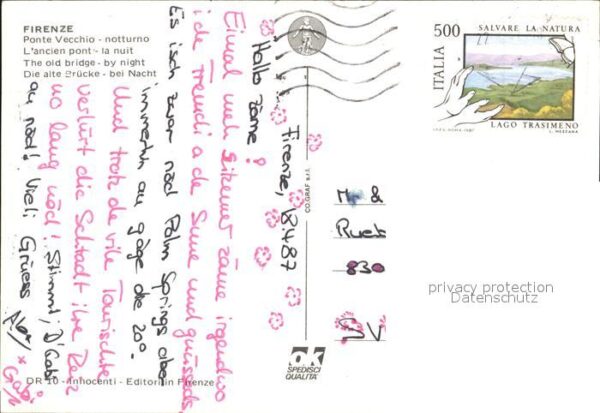 FIRENZE
Ponte Vecchio - notturno
L'ancien pont - la nuit
The old bridge - by night
Die alte Brücke - bei Nacht
Firenze, 18487
Hallo zäme!
Einmal meh sitzemer zäme irgendwo
i de Frendi a de Sune und
Es isch zwar nöd Palm Springs aber
immerhin au gäge die 20°.
Und trotz de vile Tourischte
verlürt die Schtadt ihre Reiz
no lang nöd! Stimmt, D'Gabi
au nöd! Vieli Grüess
Gabi
DR 10 - Innocenti - Editori in Firenze
CO.GRAF s.r.l.
ok
SPEDISCI
QUALITÀ
500
SALVARE LA NATURA
ITALIA
LAGO TRASIMENO
&
830
SV
privacy protection
Datenschutz